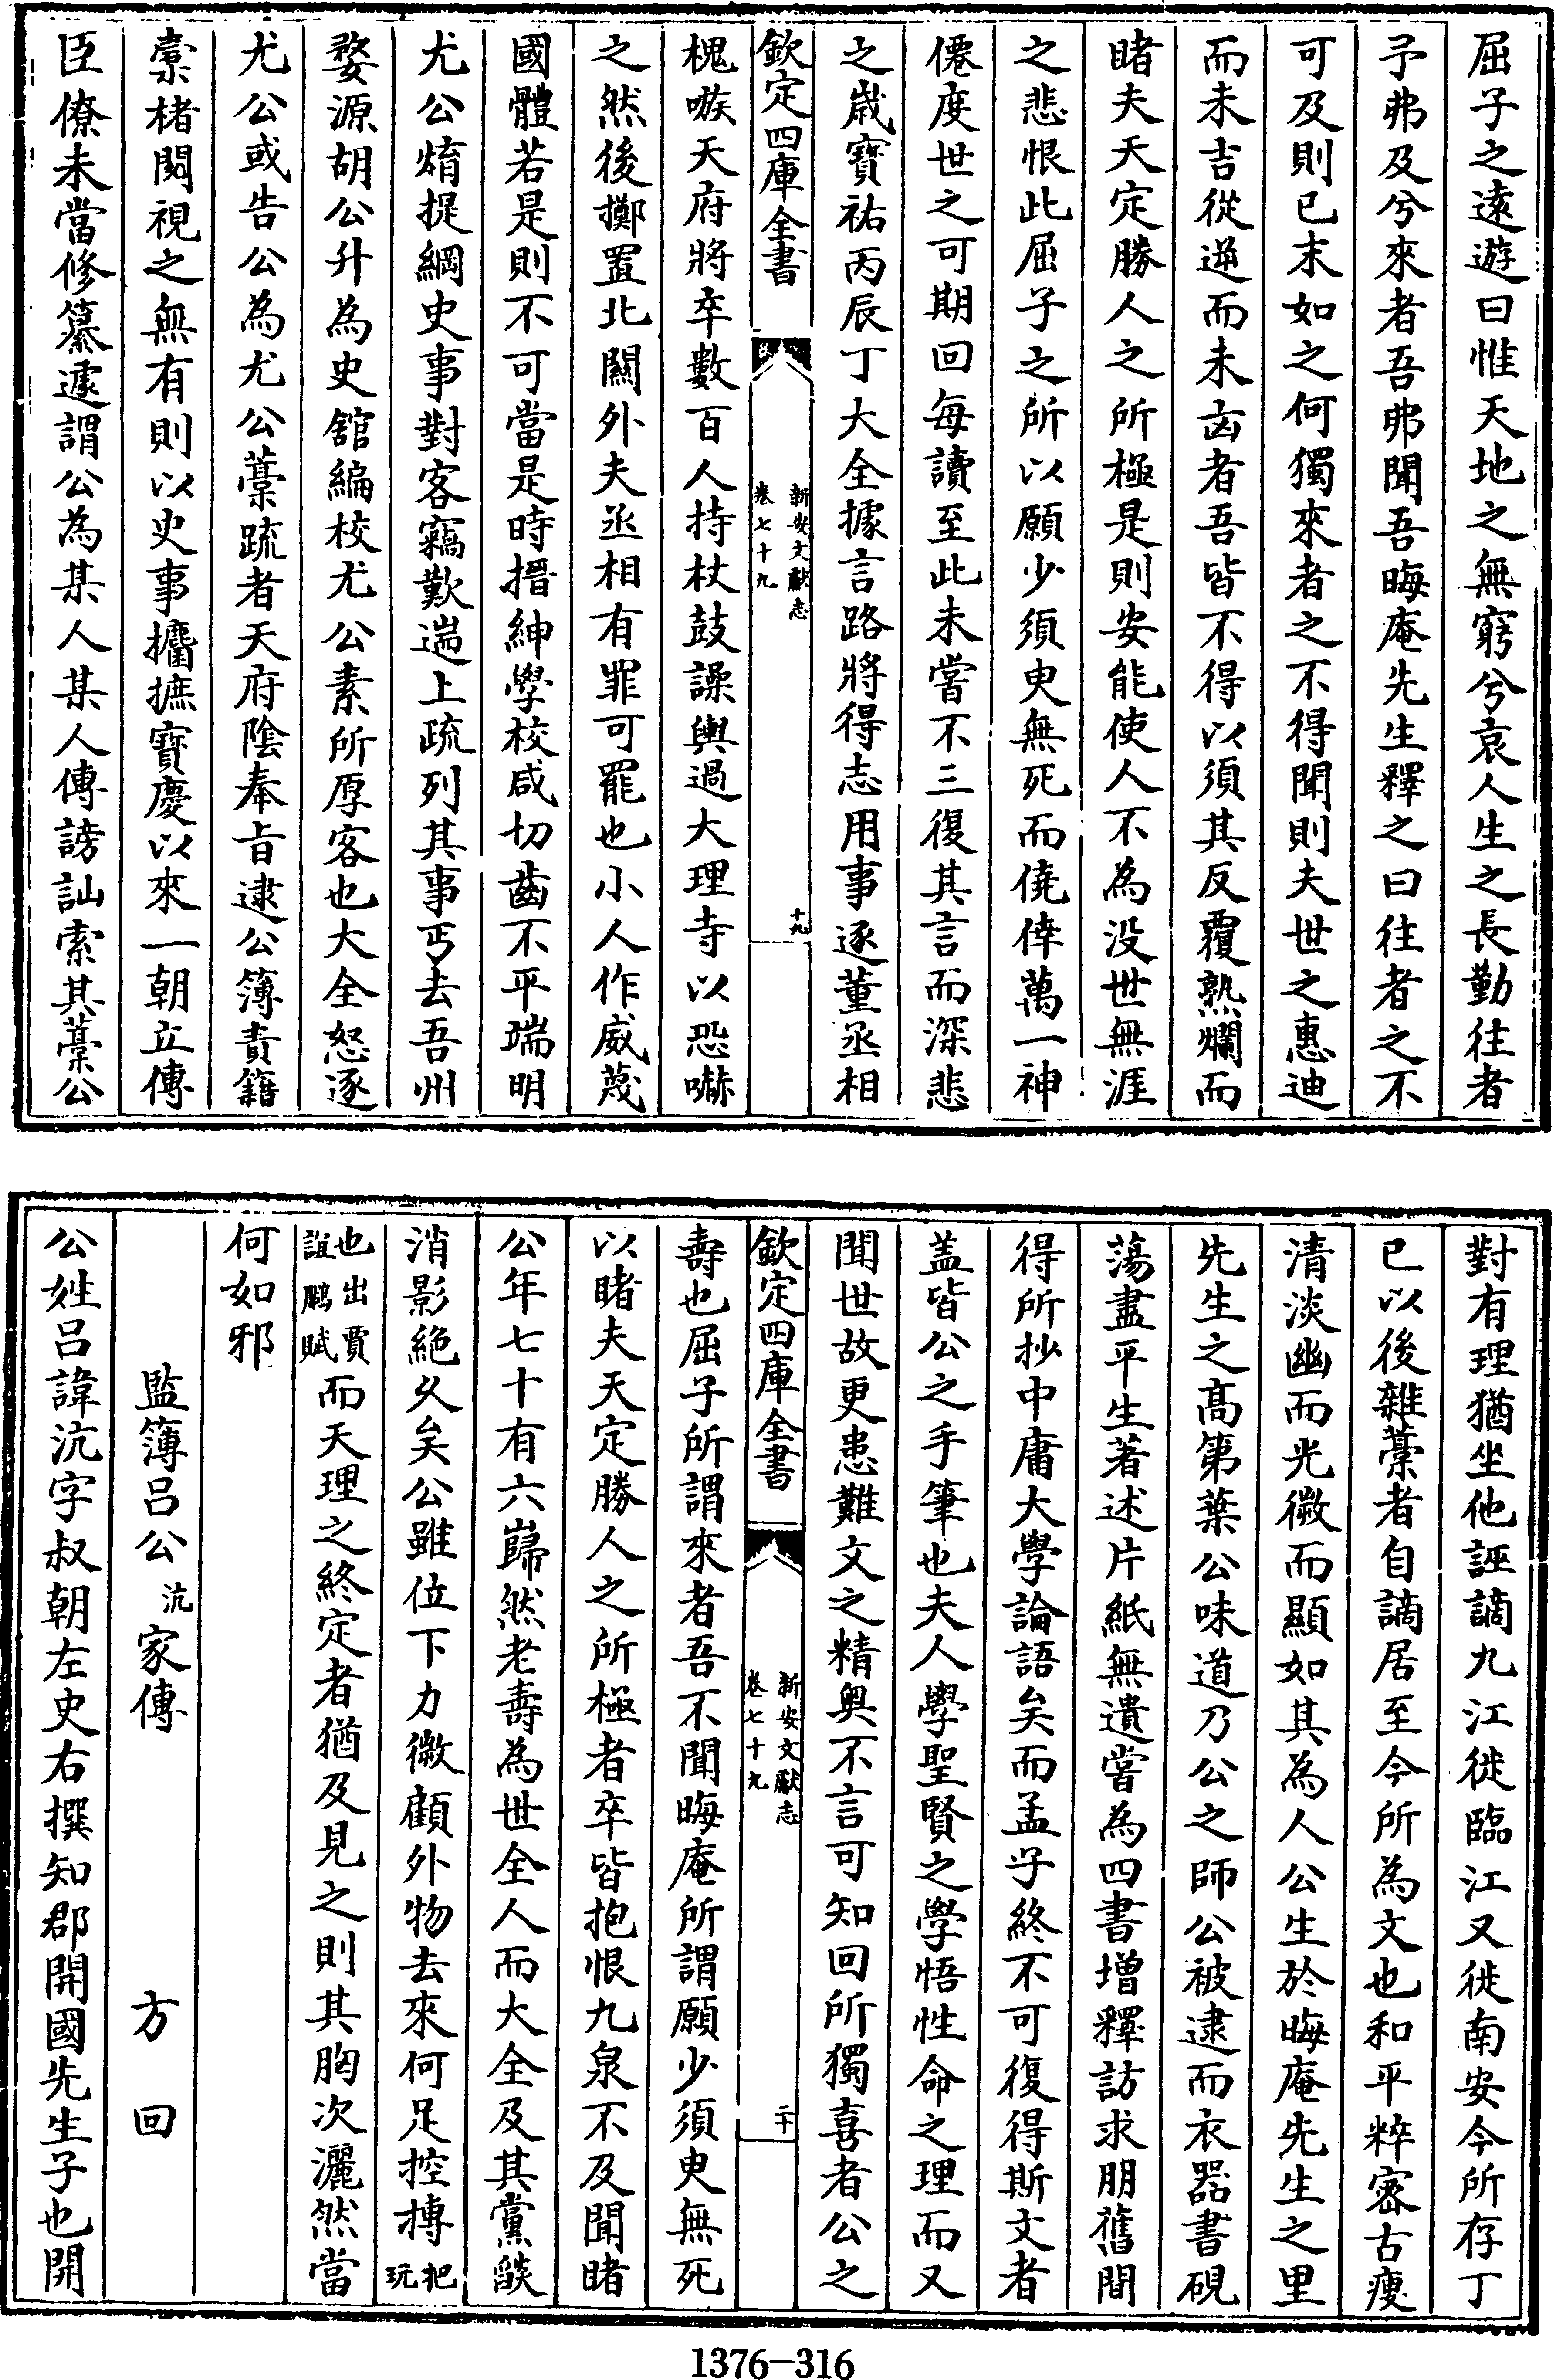 屈子之逺遊曰惟天地之無窮兮哀人生之長勤往者
予弗及兮來者吾弗聞吾晦庵先生釋之曰往者之不
可及則已末如之何獨來者之不得聞則夫世之惠迪
而未吉從逆而未㐫者吾皆不得以須其反覆熟爛而
睹夫天定勝人之所極是則安能使人不為没世無涯
之悲恨此屈子之所以願少須臾無死而僥倖萬一神
僊度世之可期回每讀至此未嘗不三復其言而深悲
之歲寳祐丙辰丁大全據言路將得志用事逐董丞相
欽定四庫全書
新安文獻志
卷七十九
十九
槐嗾天府將卒數百人持杖鼓譟輿過大理寺以恐嚇
之然後擲置北闗外夫丞相有罪可罷也小人作威蔑
國體若是則不可當是時搢紳學校咸切齒不平端明
尤公焴提綱史事對客竊歎遄上疏列其事丐去吾州
婺源胡公升為史舘編校尤公素所厚客也大全怒逐
尤公或告公為尤公藁疏者天府隂奉旨逮公簿責籍
橐楮閲視之無有則以史事攟摭寳慶以來一朝立傳
臣僚未當修纂遽謂公為某人某人傳謗訕索其藁公
對有理猶坐他誣謫九江徙臨江又徙南安今所存丁
已以後雜藁者自謫居至今所為文也和平粹宻古瘦
清淡幽而光微而顯如其為人公生於晦庵先生之里
先生之髙第葉公味道乃公之師公被逮而衣器書硯
蕩盡平生著述片紙無遺嘗為四書增釋訪求朋舊間
得所抄中庸大學論語矣而孟子終不可復得斯文者
盖皆公之手筆也夫人學聖賢之學悟性命之理而又
聞世故更患難文之精奥不言可知回所獨喜者公之
欽定四庫全書
新安文獻志
卷七十九
二十
壽也屈子所謂來者吾不聞晦庵所謂願少須臾無死
以睹夫天定勝人之所極者卒皆抱恨九泉不及聞睹
公年七十有六巋然老壽為世全人而大全及其黨燄
消影絶久矣公雖位下力微顧外物去來何足控摶把玩
也出賈誼鵩賦而天理之終定者猶及見之則其胸次灑然當
何如邪
監簿吕公沆家傳　方回
公姓吕諱沆字叔朝左史右撰知郡開國先生子也開
1376-316